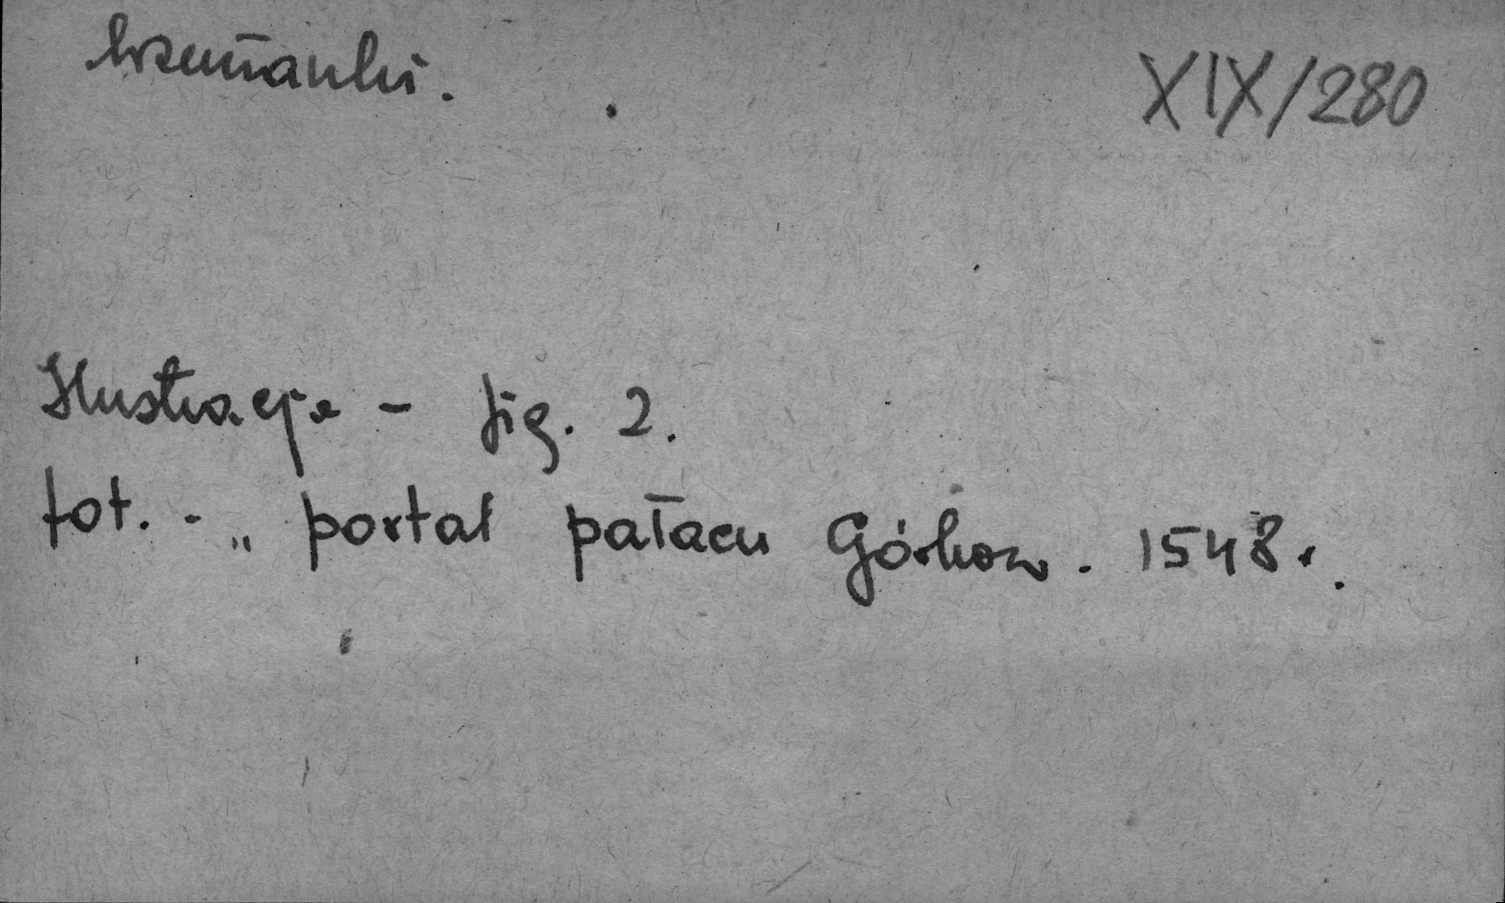 krzemionki.
XIX/280
Ilustracje - fig. 2.
fot. - „ portal pałacu Górków. 1548 r.